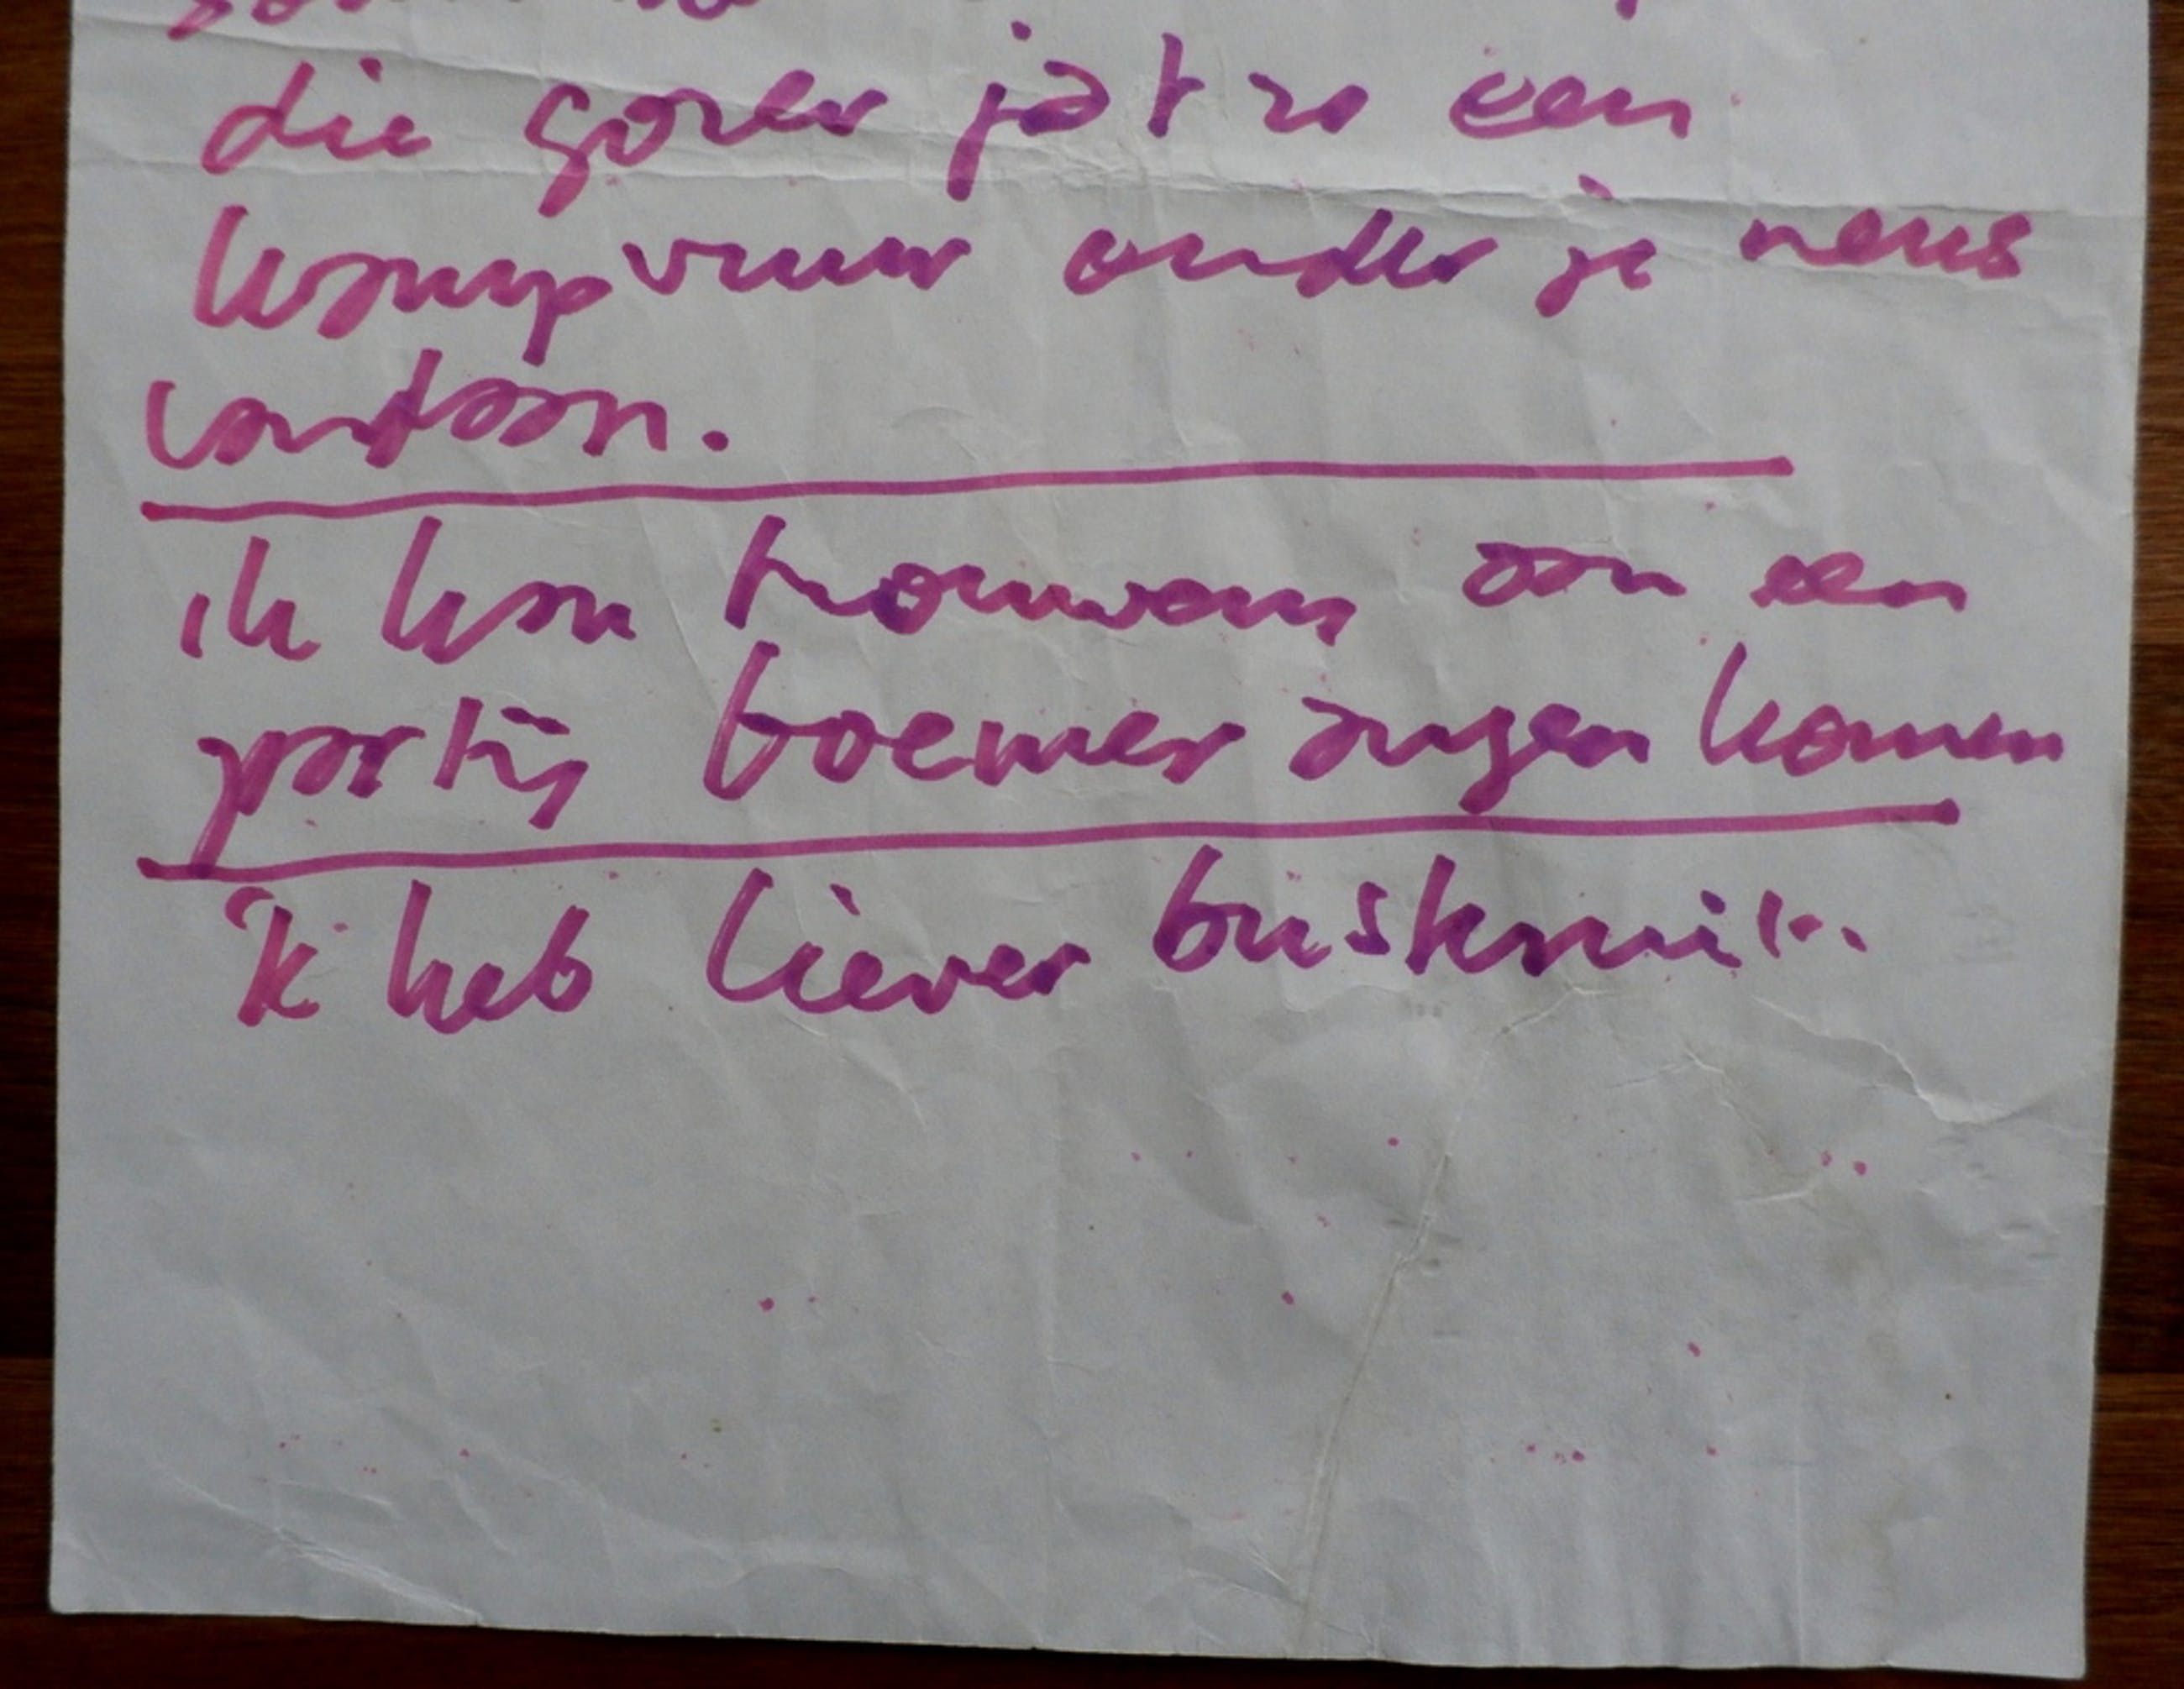 die gozer jat zo een
kampvuur onder je neus
vandaan.
ik kan trouwens aan een
partij boemerangen komen
'k heb liever buskruit.